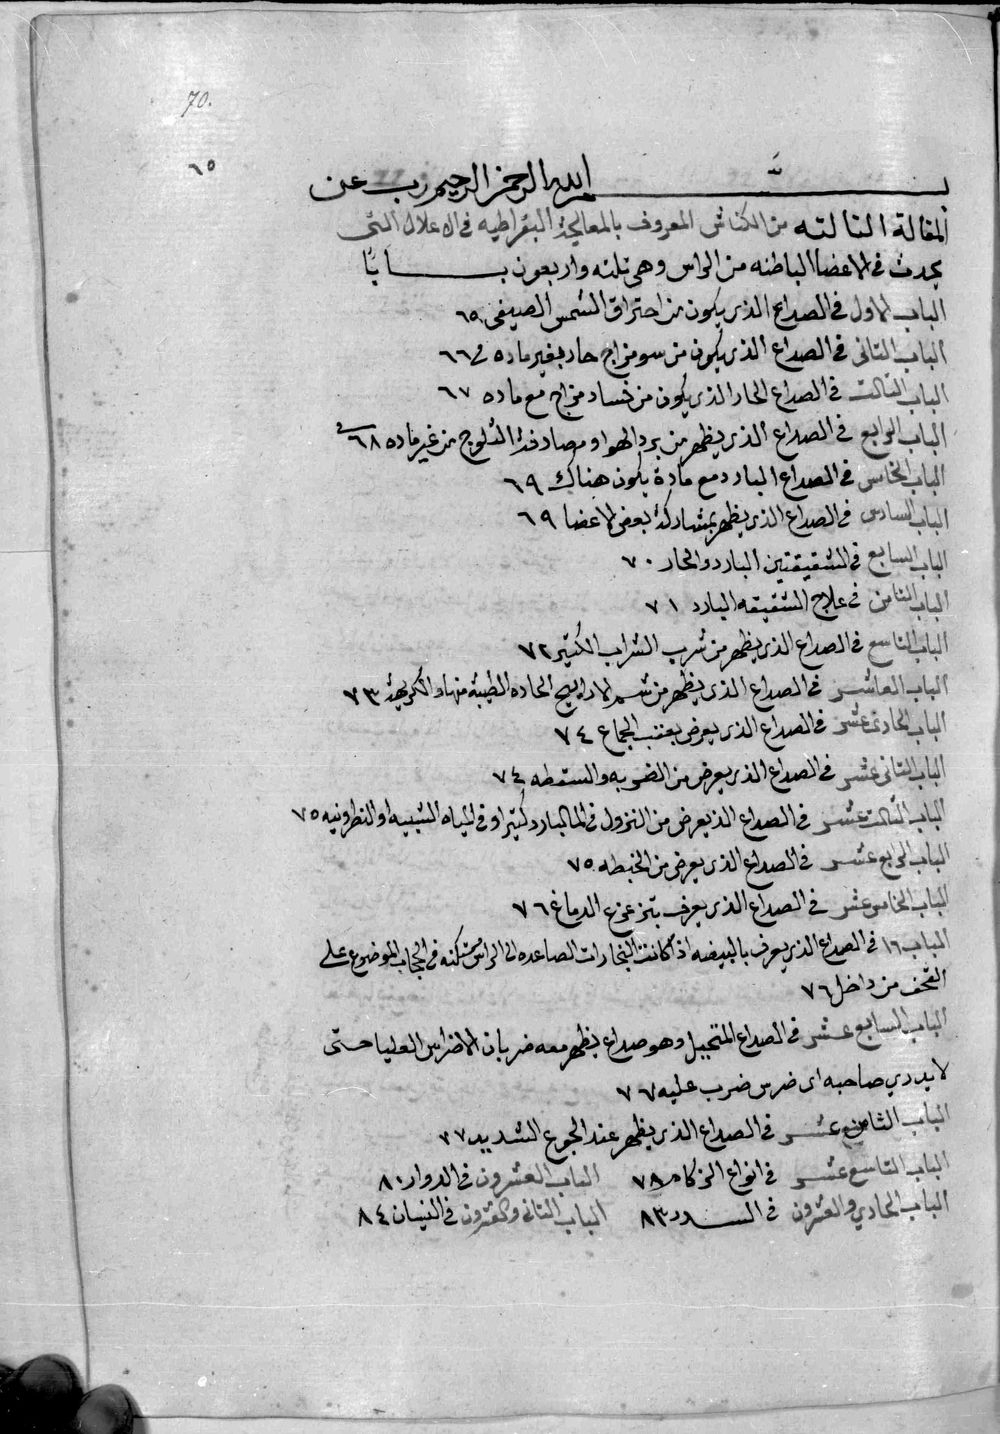 70.
٦٥
بسم الله الرحمن الرحيم رب عن
المقالة الثالثه من الكناش المعروف بالمعالجة البقراطيه في الاعلال التى
يحدث في الاعضا الباطنه من الراس وهى ثلثه واربعون بابًا
الباب الاول في الصداع الذى يكون من احتراق الشمس الصيفى ٦٥
الباب الثانى في الصداع الذى يكون من سو مزاج حار بغير ماده ٦٦
الباب الثالث في الصداع الحار الذى يكون من فساد مزاج مع ماده ٦٧
الباب الرابع في الصداع الذى يظهر من برد الهوا ومصادفة الثلوج من غير ماده ٦٨
الباب الخامس في الصداع البارد مع مادة يكون هناك ٦٩
الباب السادس في الصداع الذى يظهر بمشاركة بعض الاعضا ٦٩
الباب السابع في الشقيقتين البارد والحار ٧٠
الباب الثامن في علاج الشقيقه البارد ٧١
الباب التاسع في الصداع الذى يظهر من شرب الشراب الكثير ٧٢
الباب العاشر في الصداع الذى يظهر من شم الاراييح الحاده الطيبة منها والكريهة ٧٣
الباب الحادى عشر في الصداع الذى يعرض بعقب الجماع ٧٤
الباب الثانى عشر في الصداع الذى يعرض من الضربه والسقطه ٧٤
الباب الثالث عشر في الصداع الذ يعرض من النزول في الما البارد كثيرا وفي المياه الشبيه او النطرونيه ٧٥
الباب الرابع عشر في الصداع الذى يعرض من الخبطه ٧٥
الباب الخامس عشر في الصداع الذى يعرف بتزعزع الدماغ ٧٦
الباب ١٦ في الصداع الذى يعرف بالبيضه اذا كانت البخارات الصاعده الى الراس متمكنه في الحجاب الموضوع على
القحف من داخل ٧٦
الباب السابع عشر في الصداع المتخيل وهو صداع يظهر معه ضربان الاضراس العليا حتى
لا يدري صاحبه اى ضرس ضرب عليه ٧٦
الباب الثامن عشر في الصداع الذى يظهر عند الجوع الشديد ٧٧
الباب التاسع عشر في انواع الزكام ٧٨ الباب العشرون في الدوار ٨٠
الباب الحادي والعشرون في السدر ٨٣ الباب الثانى والعشرون في النسيان ٨٤